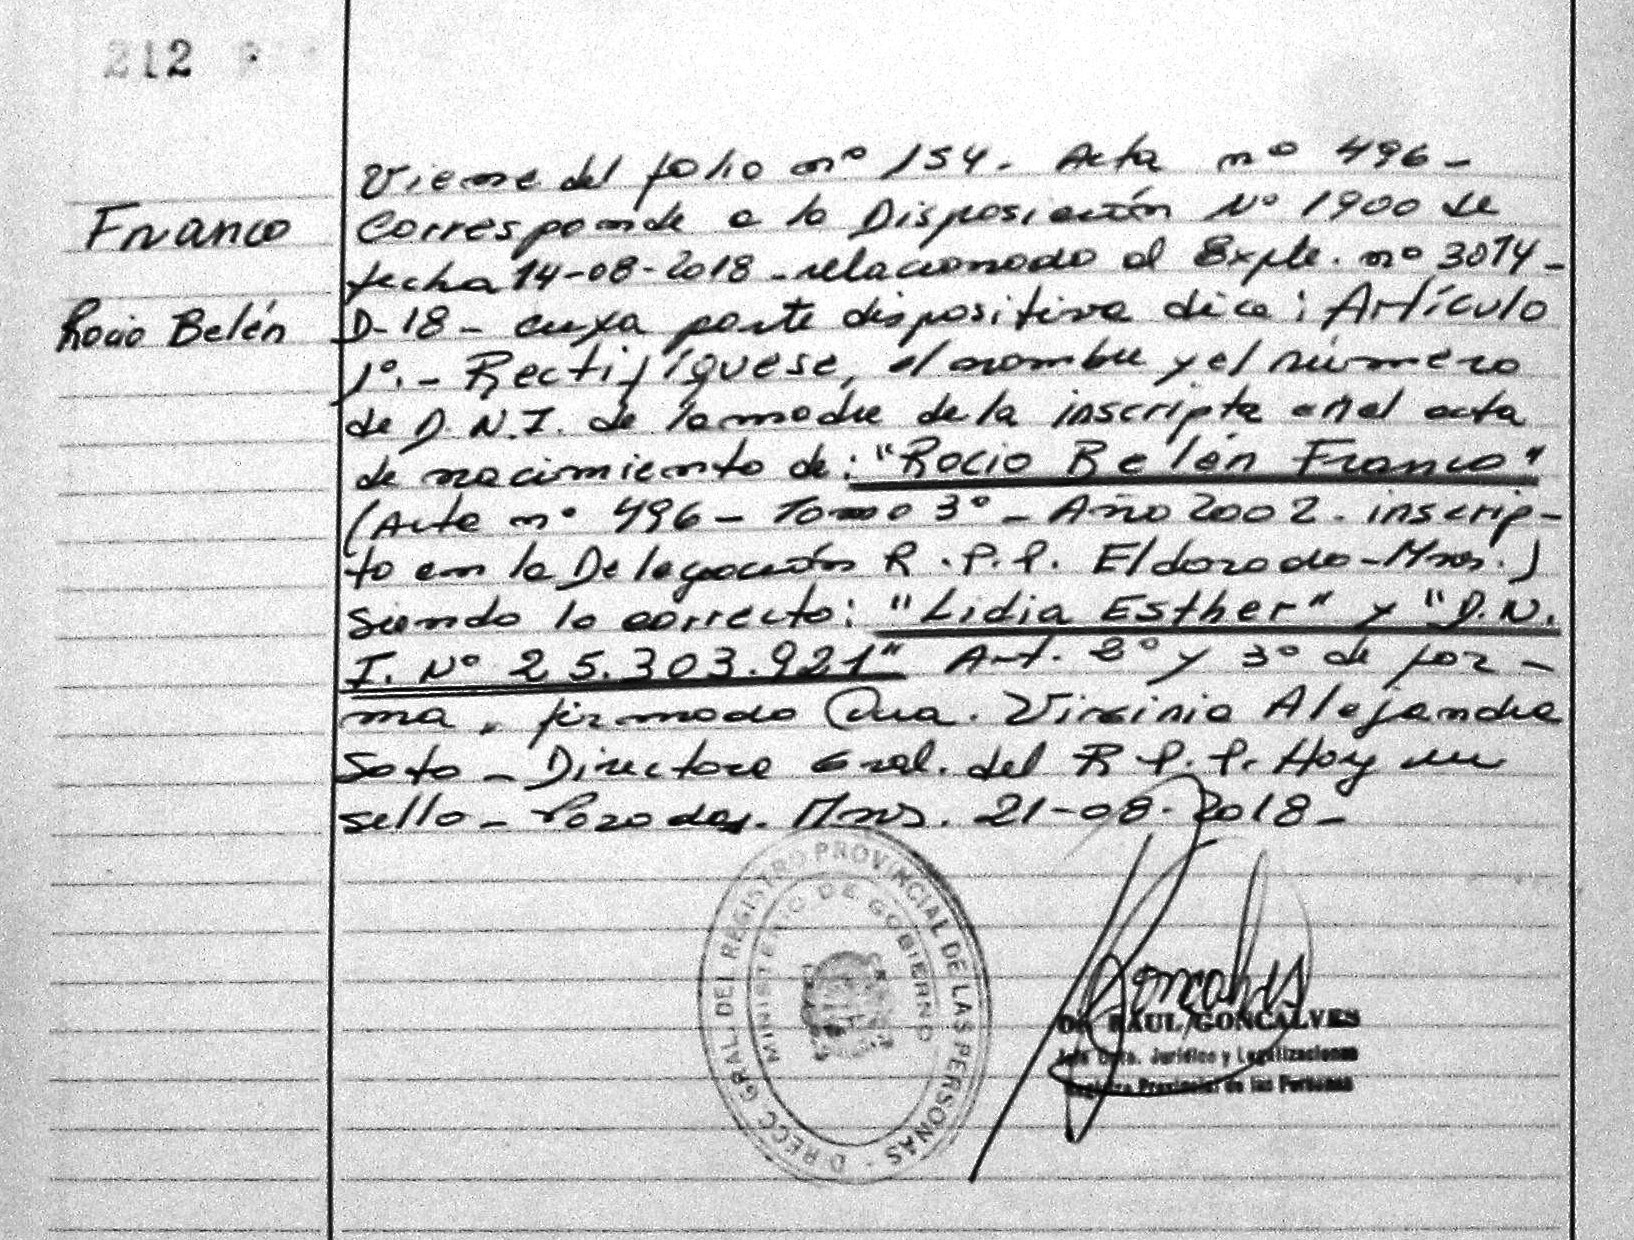 212
Franco
Rocio Belén
Viene del folio nº 154. Acta nº 496-
Corresponde a la Disposición Nº 1900 de
fecha 14-08-2018 - relacionado al Expte. nº 3074-
D-18- cuya parte dispositiva dice: Artículo
1º.- Rectifíquese, el nombre y el número
de D.N.I. de la madre de la inscripta en el acta
de nacimiento de: "Rocio Belén Franco"
(Acta nº 496- Tomo 3º- Año 2002. inscrip-
to en la Delegación R.P.P. Eldorado-Mnes.)
siendo lo correcto: "Lidia Esther" y "D.N.
I. Nº 25.303.921" Art. 2º y 3º de for-
ma, firmado Dra. Virginia Alejandra
Soto - Directora Gral. del R.P.P. Hoy un
sello - Posadas. Mnes. 21-08-2018-
DIRECC. GRAL. DEL REGISTRO PROVINCIAL DE LAS PERSONAS -
MINISTERIO DE GOBIERNO
Goncalves
Dr. RAUL GONCALVES
Dpto. Jurídico y Legalizaciones
Registro Provincial de las Personas